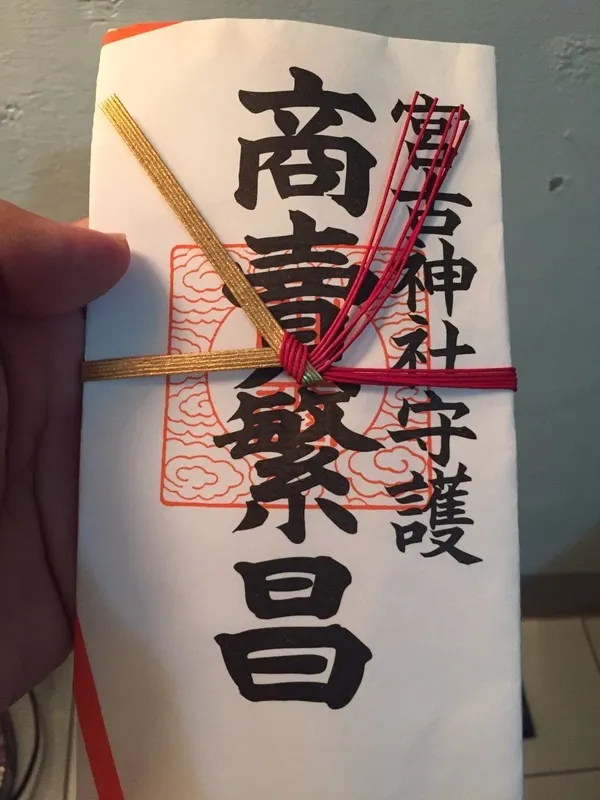 宮古神社守護
商賣繁昌